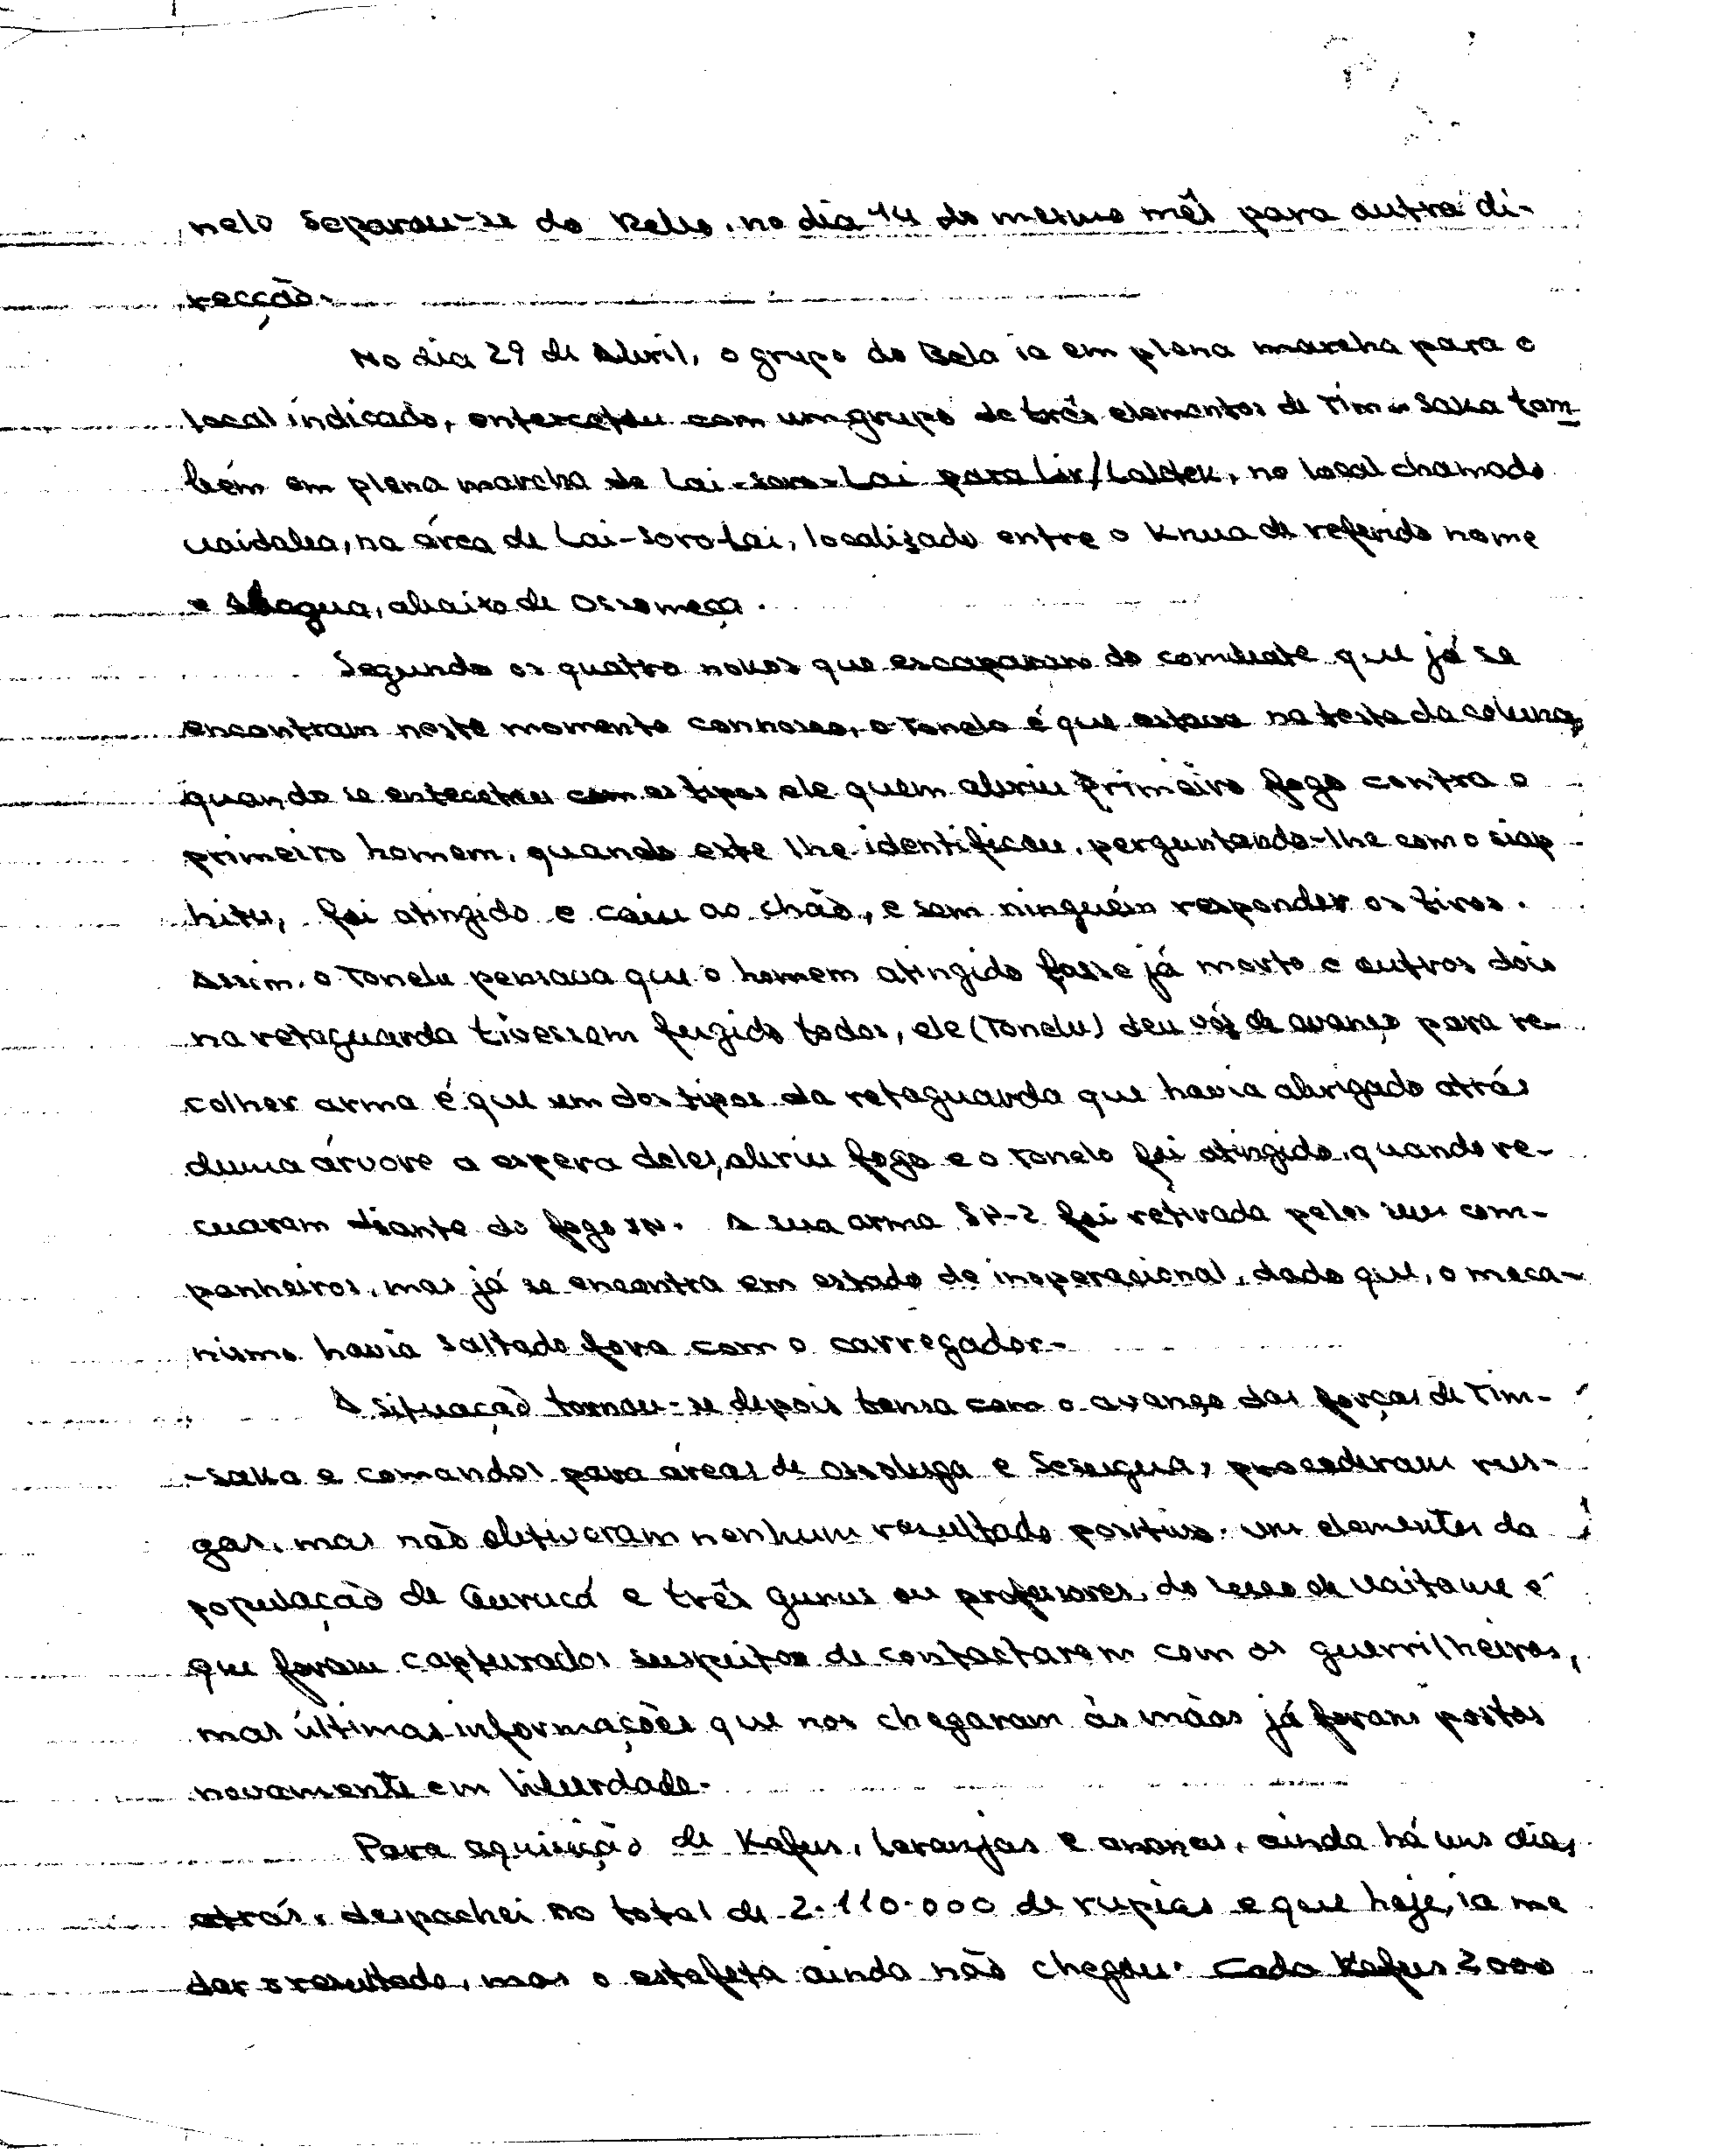 nelo separou-se do Relio, no dia 14 do mesmo mês para outra di-
recção.
No dia 29 de Abril, o grupo do Bela ia em plena marcha para o
local indicado, entercetou com um grupo de três elementos de Tim-Saka tam-
bém em plena marcha de Lai-soro-Lai para Lir/Laldek, no local chamado
Uaidalea, na área de Lai-Soro-Lai, localizado entre o Knua de referido nome
e abaixo de Ossomeça.
Segundo os quatro nokos que escaparam do combate que já se
encontram neste momento connosco, o Tonelo é que estava na testa da coluna,
quando se entecetou com os tipos ele quem abriu primeiro fogo contra o
primeiro homem, quando este lhe identificou, perguntando-lhe com o siap
hitu, foi atingido e caiu ao chão, e sem ninguém responder os tiros.
Assim, o Tonelu pensava que o homem atingido fosse já morto e outros dois
na retaguarda tivessem fugido todos, ele (Tonelu) deu vóz de avanço para re-
colher arma é que um dos tipos da retaguarda que havia abrigado atrás
duma árvore a espera deles, abriu fogo e o Tonelo foi atingido, quando re-
cuaram diante do fogo IN. A sua arma SP-2 foi retirada pelos seus com-
panheiros, mas já se encontra em estado de inoperacional, dado que, o meca-
nismo havia saltado fora com o carregador.
A situação tornou-se depois tensa com o avanço das forças de Tim-
-Saka e comandos para áreas de Ossoluga e Seseugua, procederam rus-
gas, mas não obtiveram nenhum resultado positivo. Um elementos da
população de Burucá e três gurus ou professores, do de Uaitame é
que foram capturados suspeitos de contactarem com os guerrilheiros,
mas últimas informações que nos chegaram às mãos já foram postos
novamente em liberdade.
Para aquisição de Kafus, laranjas e ananas, ainda há uns dias
atrás, despachei no total de 2.110.000 de rupias e que hoje, ia me
dar o resultado, mas o estafeta ainda não chegou. Cada Kafus 2000